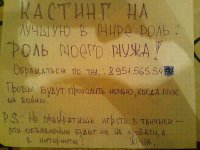 КАСТИНГ НА
ЛУЧШУЮ В МИРЕ РОЛЬ:
РОЛЬ МОЕГО МУЖА!
Обращаться по тел.: 8 951 565 54
Пробы будут проходить ночью, когда муж
на войне.
P.S.: Не прекратишь играть в танчики -
это объявление будет не на кровати, а
в интернете!
ЖЕНА.